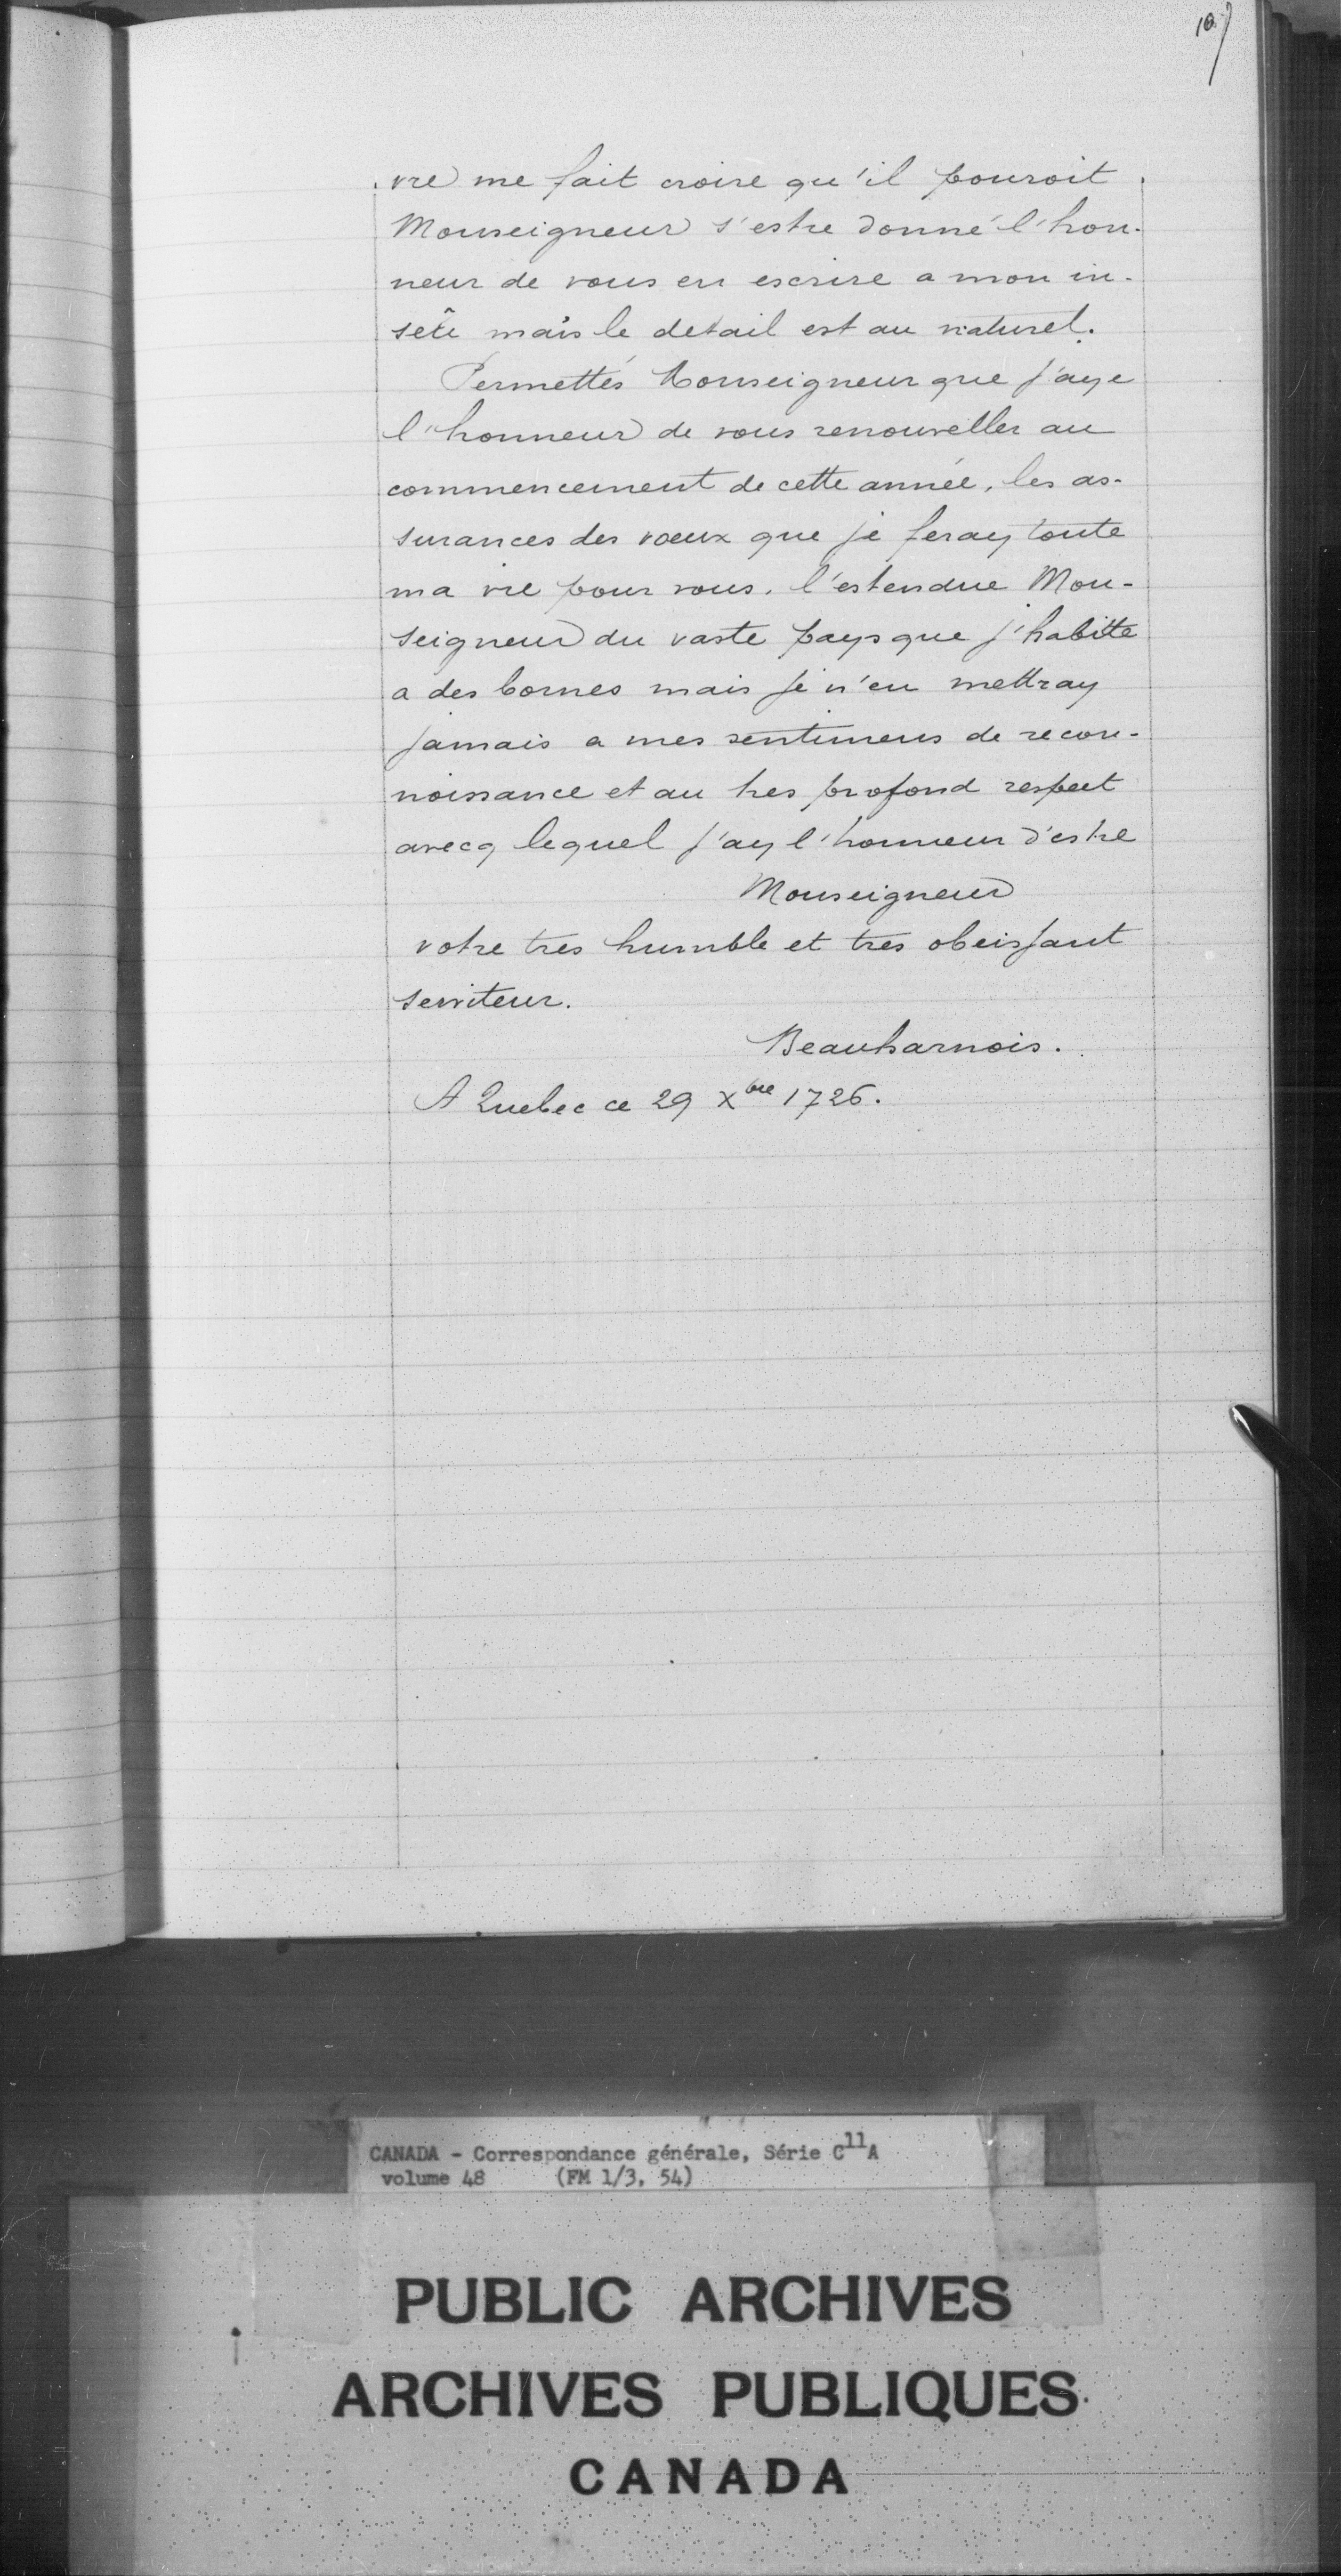 107
vre me fait croire qu'il pouroit
Monseigneur s'estre donné l'hon-
neur de vous en escrire a mon in-
sêu mais le detail est au naturel.
Permettés Monseigneur que j'aye
l'honneur de vous renouveller au
commencement de cette année, les as-
surances des voeux que je feray toute
ma vie pour vous. l'estendue Mon-
seigneur du vaste pays que j'habitte
a des bornes mais je n'en mettray
jamais a mes sentimens de recon-
noissance et au tres profond respect
avecq lequel j'ay l'honneur d'estre
Monseigneur
votre tres humble et tres obeissant
serviteur.
Beauharnois.
A Quebec ce 29 Xbre 1726.
CANADA - Correspondance générale, Série C11A
volume 48 (FM 1/3, 54)
PUBLIC ARCHIVES
ARCHIVES PUBLIQUES
CANADA